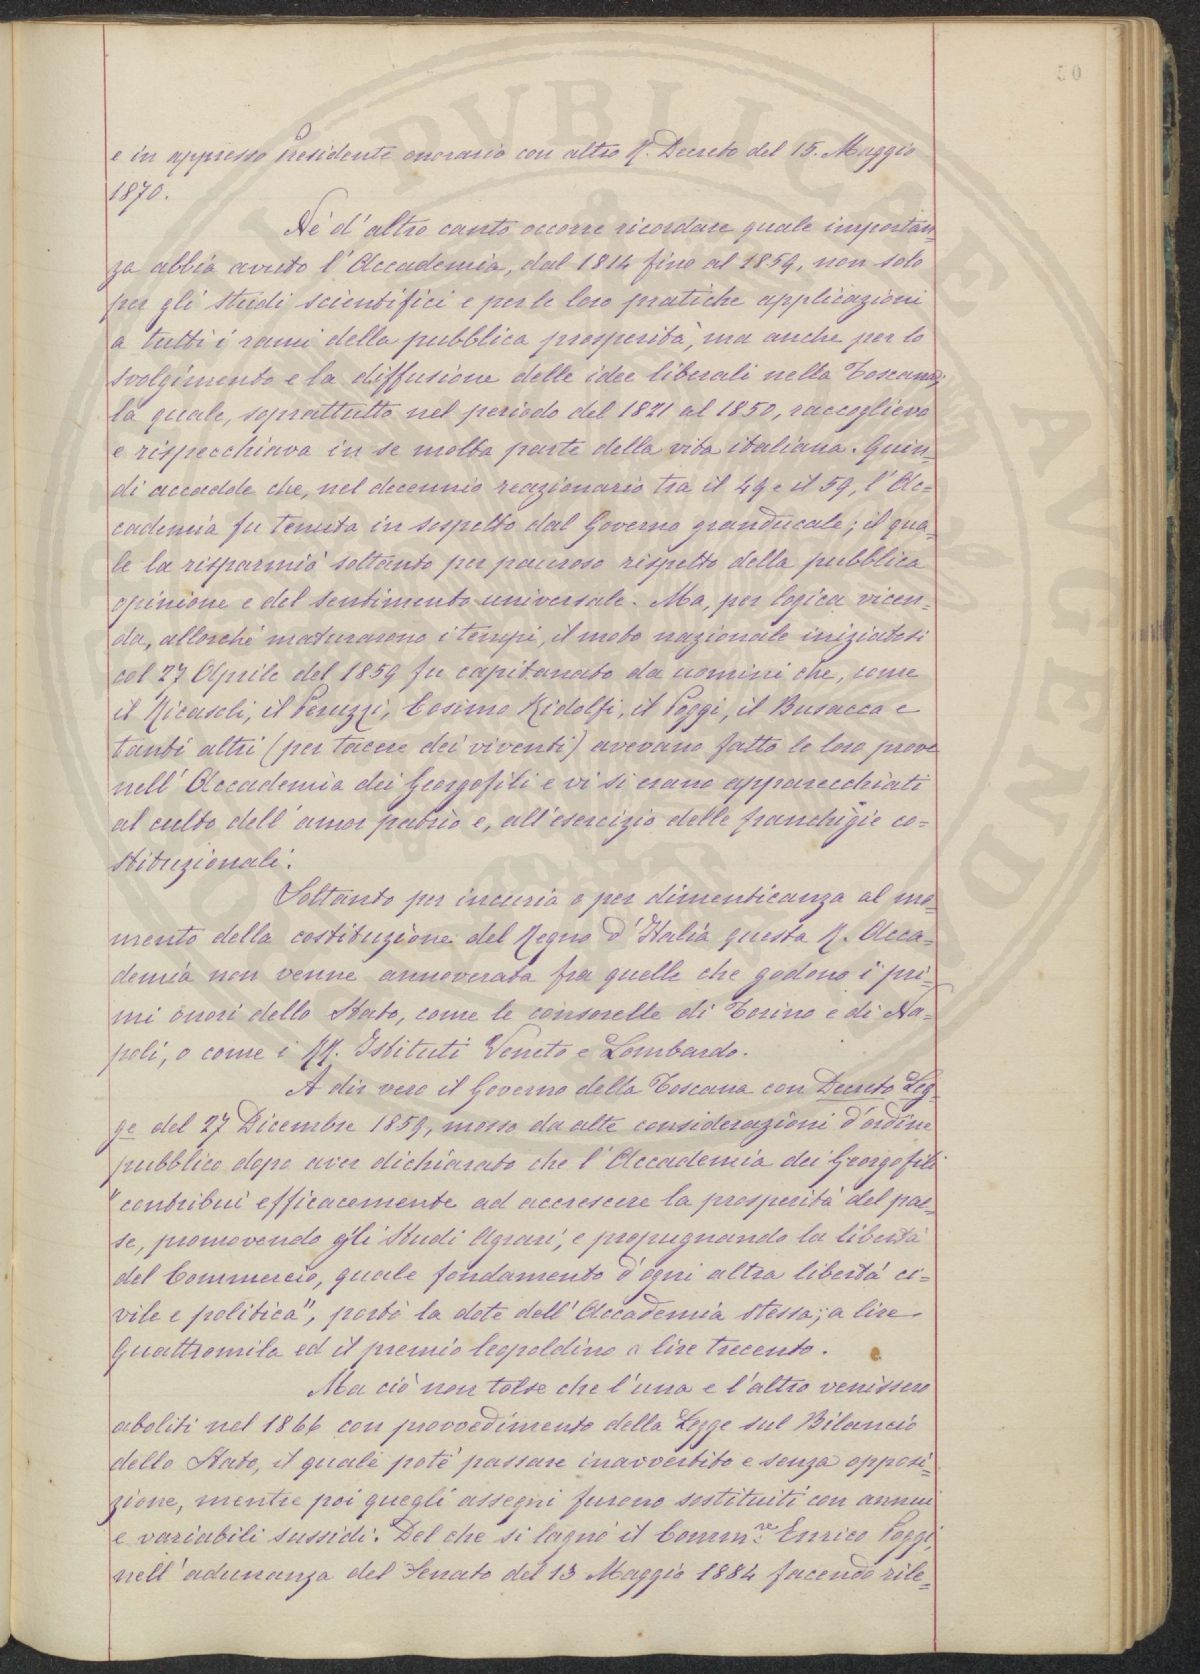 50
e in appresso Presidente onorario con altro R. Decreto del 15. Maggio
1870.
Nè d'altro canto occorre ricordare quale importan=
za abbia avuto l'Accademia, dal 1814 fino al 1859, non solo
per gli studi scientifici e per le loro pratiche applicazioni
a tutti i rami della pubblica prosperità, ma anche per lo
svolgimento e la diffusione delle idee liberali nella Toscana;
la quale, soprattutto nel periodo del 1821 al 1850, raccoglieva
e rispecchiava in se molta parte della vita italiana. Quin=
di accadde che, nel decennio reazionario tra il 49 e il 59, l'Ac=
cademia fu tenuta in sospetto dal Governo granducale; il qua=
le la risparmiò soltanto per pauroso rispetto della pubblica
opinione e del sentimento universale. Ma, per logica vicen=
da, allorchè maturarono i tempi, il moto nazionale iniziatosi
col 27 Aprile del 1859 fu capitanato da uomini che, come
il Ricasoli, il Peruzzi, Cosimo Ridolfi, il Poggi, il Busacca e
tanti altri (per tacere dei viventi) avevano fatto le loro prove
nell'Accademia dei Georgofili e vi si erano apparecchiati
al culto dell'amor patrio e, all'esercizio delle franchigie co=
stituzionali.
Soltanto per incuria o per dimenticanza al mo=
mento della costituzione del Regno d'Italia questa R. Acca=
demia non venne annoverata fra quelle che godono i pri=
mi onori dello Stato, come le consorelle di Torino e di Na=
poli, o come i RR. Istituti Veneto e Lombardo.
A dir vero il Governo della Toscana con Decreto Leg=
ge del 27 Dicembre 1859, mosso da alte considerazioni d'ordine
pubblico dopo aver dichiarato che l'Accademia dei Georgofili
"contribuì efficacemente ad accrescere la prosperità del pae=
se, promovendo gli Studi Agrari, e propugnando la libertà
del Commercio, quale fondamento d'ogni altra libertà ci=
vile e politica", portò la dote dell'Accademia stessa; a lire
Quattromila ed il premio leopoldino a lire trecento.
Ma ciò non tolse che l'una e l'altro venissero
aboliti nel 1866 con provvedimento della Legge sul Bilancio
dello Stato, il quale potè passare inavvertito e senza opposi=
zione, mentre poi quegli assegni furono sostituiti con annui
e variabili sussidi. Del che si lagnò il Comm.re Enrico Poggi,
nell'adunanza del Senato del 13 Maggio 1884 facendo rile=